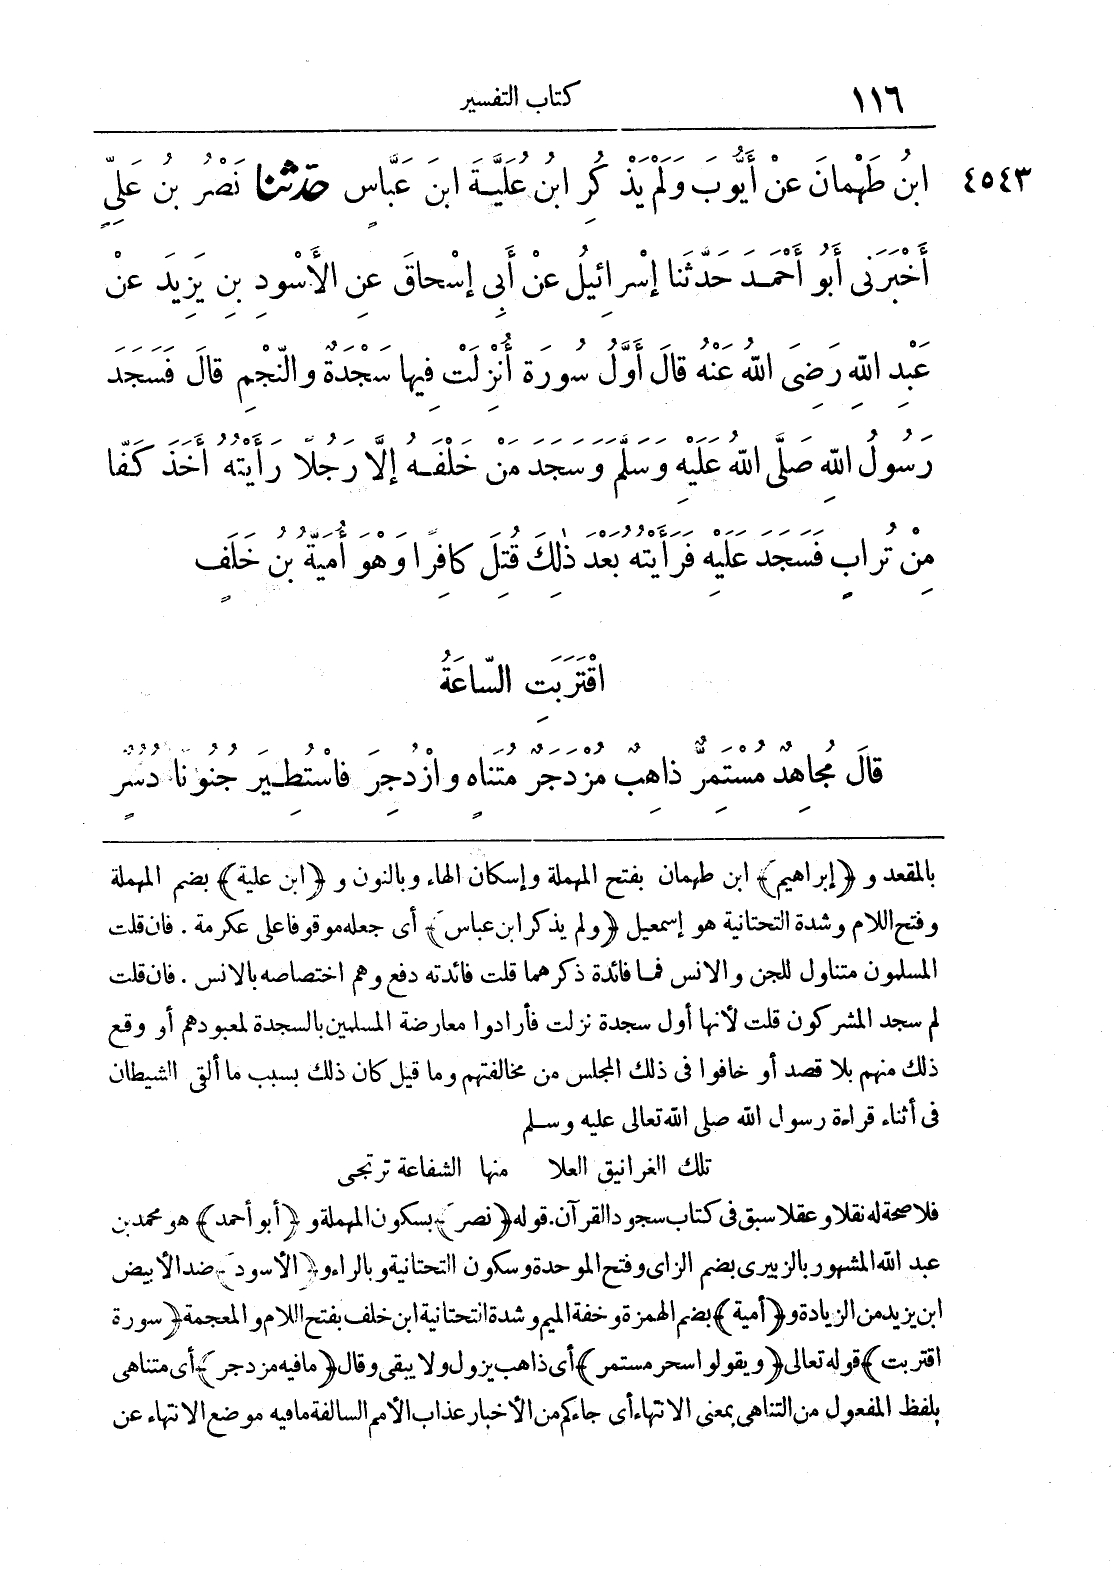 ١١٦ كتاب التفسير
٤٥٤٣ ابنُ طَهْمَانَ عَنْ أَيُّوبَ وَلَمْ يَذْكُرِ ابنُ عُلَيَّةَ ابنَ عَبَّاسٍ حَدَّثَنَا نَصْرُ بنُ عَلِيٍّ
أَخْبَرَنِى أَبُو أَحْمَدَ حَدَّثَنَا إِسْرَائِيلُ عَنْ أَبِى إِسْحَاقَ عَنِ الأَسْوَدِ بنِ يَزِيدَ عَنْ
عَبْدِ اللهِ رَضِىَ اللهُ عَنْهُ قَالَ أَوَّلُ سُورَةٍ أُنْزِلَتْ فِيهَا سَجْدَةٌ وَالنَّجْمِ قَالَ فَسَجَدَ
رَسُولُ اللهِ صَلَّى اللهُ عَلَيْهِ وَسَلَّمَ وَسَجَدَ مَنْ خَلْفَهُ إِلَّا رَجُلًا رَأَيْتُهُ أَخَذَ كَفًّا
مِنْ تُرَابٍ فَسَجَدَ عَلَيْهِ فَرَأَيْتُهُ بَعْدَ ذٰلِكَ قُتِلَ كَافِرًا وَهُوَ أُمَيَّةُ بنُ خَلَفٍ
اقْتَرَبَتِ السَّاعَةُ
قَالَ مُجَاهِدٌ مُسْتَمِرٌّ ذَاهِبٌ مُزْدَجَرٌ مُتَنَاهٍ وَازْدُجِرَ فَاسْتُطِيرَ جُنُونًا دُسُرٍ
بالمقعد و ﴿إبراهيم﴾ ابن طهمان بفتح المهملة وإسكان الهاء وبالنون و ﴿ابن علية﴾ بضم المهملة
وفتح اللام وشدة التحتانية هو إسمعيل ﴿ولم يذكر ابن عباس﴾ أى جعله موقوفا على عكرمة . فان قلت
المسلمون متناول للجن والانس فما فائدة ذكرهما قلت فائدته دفع وهم اختصاصه بالانس . فان قلت
لم سجد المشركون قلت لأنها أول سجدة نزلت فأرادوا معارضة المسلمين بالسجدة لمعبودهم أو وقع
ذلك منهم بلا قصد أو خافوا فى ذلك المجلس من مخالفتهم وما قيل كان ذلك بسبب ما ألقى الشيطان
فى أثناء قراءة رسول الله صلى الله تعالى عليه وسلم
تلك الغرانيق العلا منها الشفاعة ترتجى
فلا صحة له نقلا وعقلا سبق فى كتاب سجود القرآن. قوله ﴿نصر﴾ بسكون المهملة و ﴿أبو أحمد﴾ هو محمد بن
عبد الله المشهور بالزبيرى بضم الزاى وفتح الموحدة وسكون التحتانية وبالراء و ﴿الأسود﴾ ضد الأبيض
ابن يزيد من الزيادة و ﴿أمية﴾ بضم الهمزة وخفة الميم وشدة التحتانية ابن خلف بفتح اللام والمعجمة ﴿سورة
اقتربت﴾ قوله تعالى ﴿ويقولوا سحر مستمر﴾ أى ذاهب يزول ولا يبقى وقال ﴿ما فيه مزدجر﴾ أى متناهى
بلفظ المفعول من التناهى بمعنى الانتهاء أى جاءكم من الأخبار عذاب الأمم السالفة ما فيه موضع الانتهاء عن